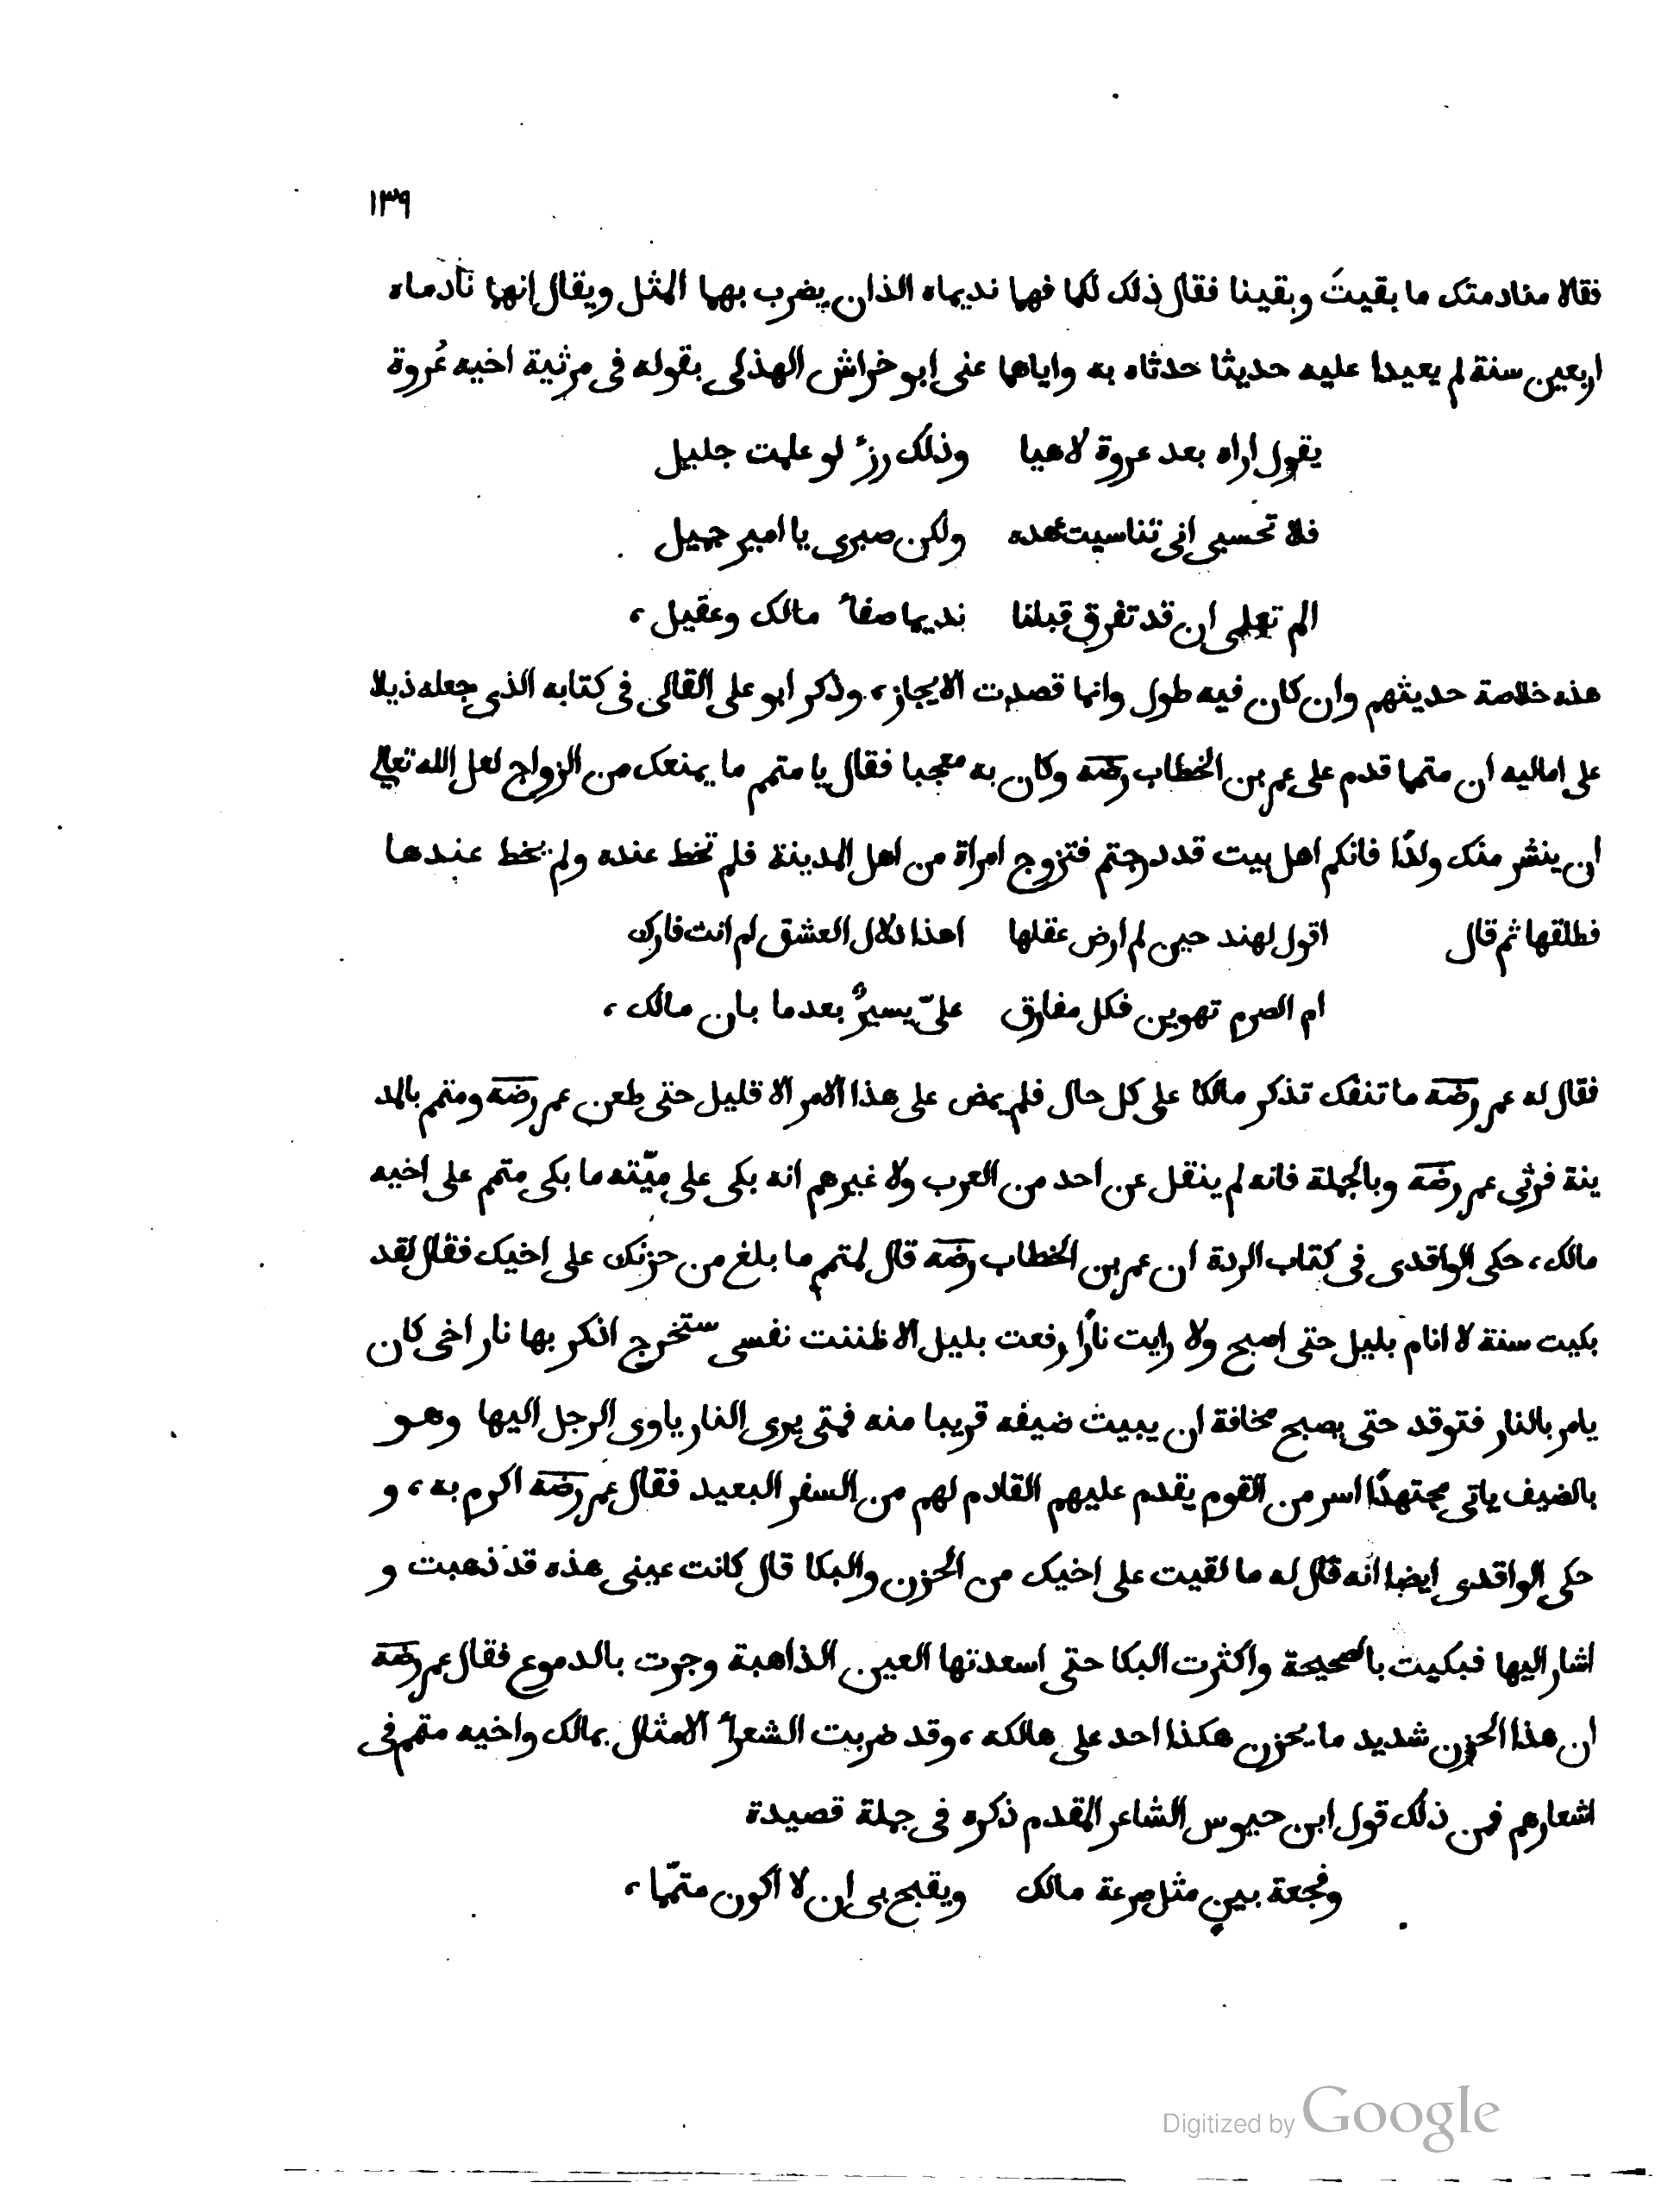 ١٣٩
فقالا منادمتك ما بقيتَ وبقينا فقال ذلك لكما فهما نديماه الذان يضرب بهما المثل ويقال انهما نادماه
اربعين سنة لم يعيدا عليه حديثا حدثاه به واياهما عنى ابو خراش الهذلى بقوله فى مرثية اخيه عُروة
يقول اراه بعد عروة لاهيا وذلك رزء لو علمت جليل
فلا تحسبى انى تناسيت عهده ولكن صبرى يا اميم جميل
الم تعلمى ان قد تفرق قبلنا نديما صفاء مالك وعقيل،
هذه خلاصة حديثهم وان كان فيه طول وانما قصدت الايجاز، وذكر ابو على القالى فى كتابه الذى جعله ذيلا
على اماليه ان متمما قدم على عمر بن الخطاب رضه وكان به معجبا فقال يا متمم ما يمنعك من الزواج لعل الله تعالى
ان ينشر منك ولدًا فانكم اهل بيت قد درجتم فتزوج امراة من اهل المدينة فلم تحظ عنده ولم يحظ عندها
فطلقها ثم قال اقول لهند حين لم ارض عقلها اهذا دلال العشق ام انت فارك
ام الصرم تهوين فكل مفارق علىّ يسيرٌ بعدما بان مالك،
فقال له عمر رضه ما تنفك تذكر مالكا على كل حال فلم يمض على هذا الامر الا قليل حتى طعن عمر رضه ومتمم بالمد
ينة فرثى عمر رضه وبالجملة فانه لم ينقل عن احد من العرب ولا غيرهم انه بكى على ميّته ما بكى متمم على اخيه
مالك، حكى الواقدى فى كتاب الردة ان عمر بن الخطاب رضه قال لمتمم ما بلغ من حزنك على اخيك فقال لقد
بكيت سنة لا انام بليل حتى اصبح ولا رايت نارًا رفعت بليل الا ظننت نفسى ستخرج اذكر بها نار اخى كان
يامر بالنار فتوقد حتى يصبح مخافة ان يبيت ضيفه قريبا منه فمتى يرى النار ياوى الرجل اليها وهو
بالضيف ياتى مجتهدًا اسر من القوم يقدم عليهم القادم لهم من السفر البعيد فقال عمر رضه اكرم به، و
حكى الواقدى ايضا انه قال له ما لقيت على اخيك من الحزن والبكا قال كانت عينى هذه قد ذهبت و
اشار اليها فبكيت بالصحيحة واكثرت البكا حتى اسعدتها العين الذاهبة وجرت بالدموع فقال عمر رضه
ان هذا الحزن شديد ما يحزن هكذا احد على هالكه، وقد ضربت الشعراء الامثال بمالك واخيه متمم فى
اشعارهم فمن ذلك قول ابن حيوس الشاعر المقدم ذكره فى جملة قصيدة
وفجعة بينٍ مثل صرعة مالك ويقبح بى ان لا اكون متمّما،
Digitized by Google